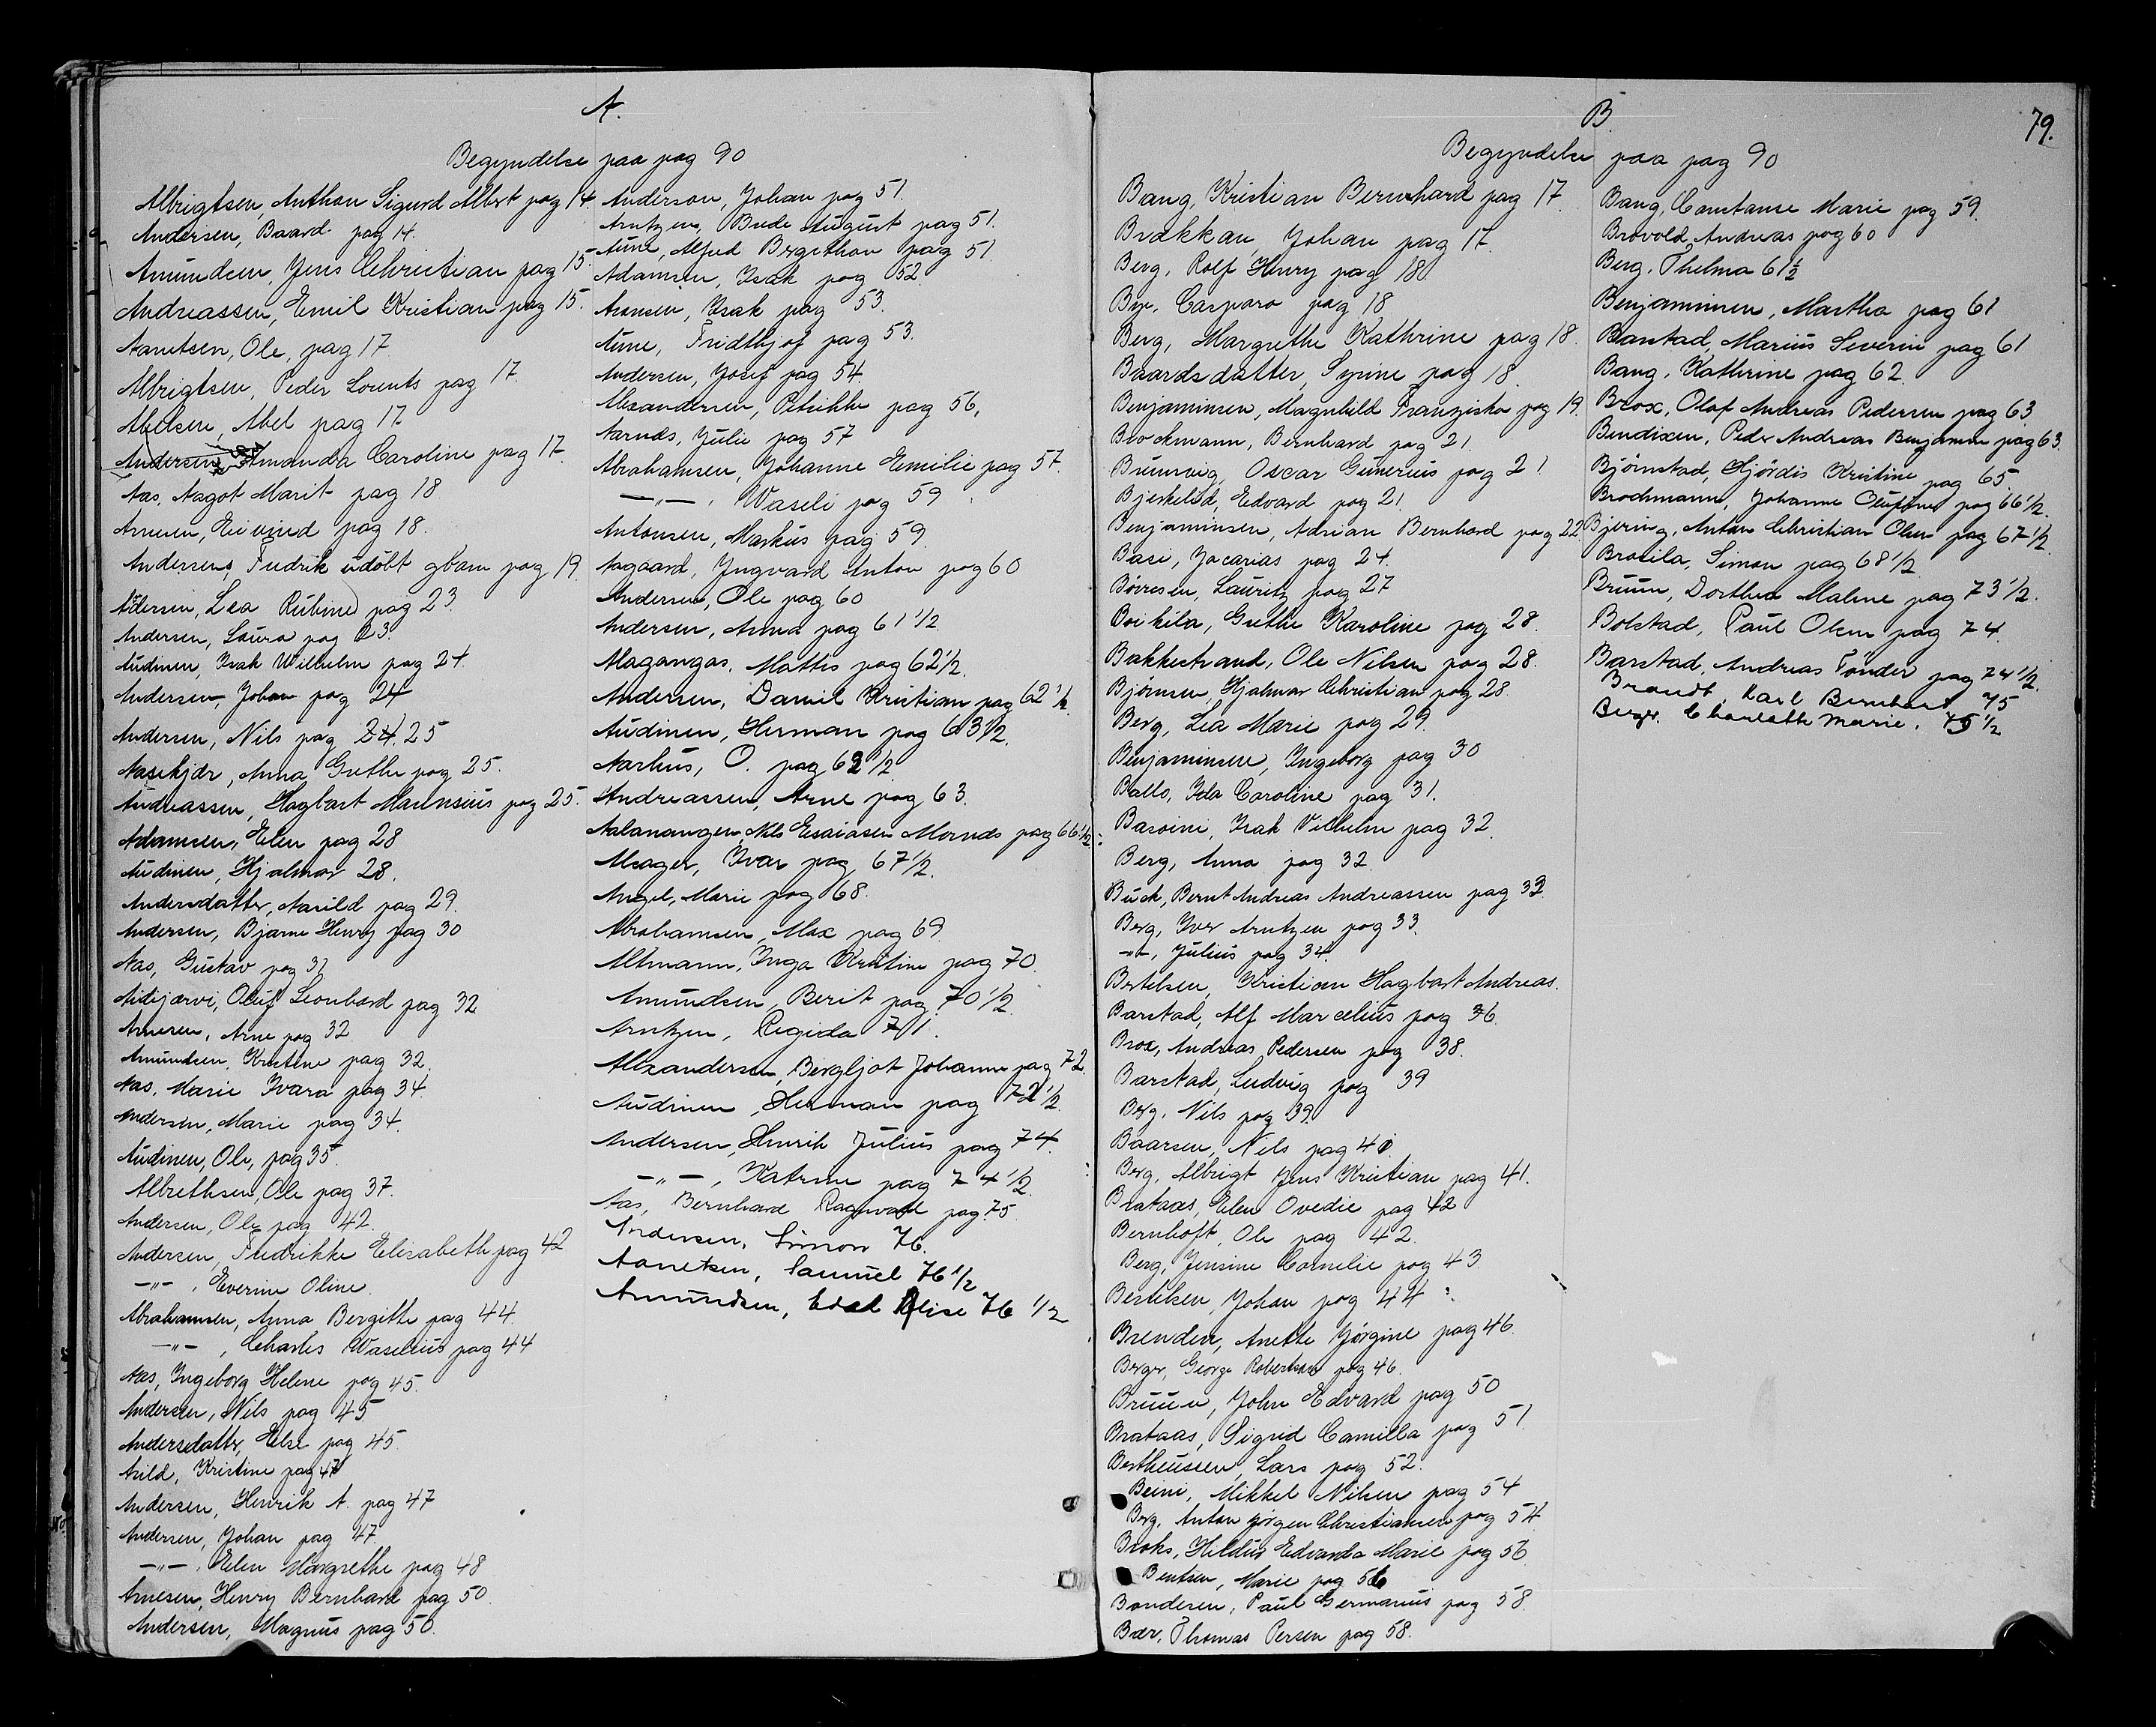 A.
Begyndelse paa pag 90
Albrigtsen, Anthon Sigurd Albert pag 14.
Andersen, Baard pag 14.
Amundsen, Jens Christian pag 15
Andreassen, Emil Kristian pag 15.
Aanetsen, Ole, pag 17
Albrigtsen, Peder Lorents pag 17.
Abelsen, Abel pag 17
Andersen, Amanda Caroline pag 17
Aas, Aagot Marit pag 18
Arnesen, Eivind pag 18.
Andersens, Fredrik udöbt gbarn pag 19.
Andersen, Lea Rubine pag 23.
Andersen, Laura pag 23.
Audinen, Isak Wilhelm pag 24.
Andersen, Johan pag 24
Andersen, Nils pag 24. 25
Anna Grethe pag 25.
Andreassen, Hagbart Marensius pag 25.
Adamsen, Elen pag 28
Audinen, Hjalmar 28.
Andersdatter, Aasild pag 29.
Andersen, Bjarne Henry pag 30
Aas, Gustav pag 31
Aidijærvi, Oluf Leonhard pag 32
Arnesen, Arne pag 32
Amundsen, Kristine pag 32.
Aas, Marie Ivara pag 34.
Andersen, Marie pag 34.
Audinen, Ole, pag 35.
Albrethsen, Ole pag 37.
Andersen, Ole pag 42.
Andersen, Fredrikke Elisabeth pag 42
—„— , Everine Oline.
Abrahamsen, Anna Bergitte pag 44.
—„— , Charles Waselius pag 44
Aas, Ingeborg Helene pag 45.
Andersen, Nils pag 45
Andersdatter, Else pag 45.
Arild, Kristine pag 47
Andersen, Henrik A. pag 47
Andersen, Johan pag 47.
—„— , Elen Margrethe pag 48
Arnesen, Henry Bernhard pag 50.
Andersen, Magnus pag 50.
Anderson, Johan pag 51.
Arntzen, Bude August pag 51.
Aune, Alfred Bergithon pag 51
Adamsen, Isak pag 52.
Aronsen, Isak pag 53.
Aune, Fridthjof pag 53.
Andersen, Josef pag 54.
Alexandersen, Petrikke pag 56,
Aarnæs, Julie pag 57
Abrahamsen, Johanne Emilie pag 57.
—„— , Waseli pag 59
Antonsen, Markus pag 59.
Aagaard, Ingvard Anton pag 60
Andersen, Ole pag 60
Andersen, Anna pag 61 1/2
Magangas, Mattis pag 62 1/2.
Andersen, Daniel Kristian pag 62 1/2
Audinen, Herman pag 63 1/2.
Aarhus, O. pag 62 1/2
Andreassen, Arne pag 63.
Aalanangen Nils Esaiasen Mornæs pag 66 1/2
Alsager, Ivar pag 67 1/2.
Angel, Marie pag 68.
Abrahamsen, Max pag 69.
Altmann, Inga Kristine pag 70.
Amundsen, Berit pag. 70 1/2.
Arntzen, Regida 71.
Alexandersen, Bergljot Johanne pag 72.
Audinen, Herman pag 72 1/2.
Andersen, Henrik Julius pag 74.
—„— , Katrine pag 74 1/2.
Aas, Bernhard Ragnvald pag. 75.
Andersen, Simon 76.
Aanetsen, Samuel 76 1/2
Amundsen, Edel Alise 76 1/2
B
79.
Begyndelse paa pag 90
Bang, Kristian Bernhard pag 17.
Brækkan, Johan pag 17.
Berg, Rolf Henry pag 18.
Bye, Casparo pag 18
Berg, Margrethe Kathrine pag 18.
Baardsdatter, Syrine pag 18.
Benjaminsen, Magnhild Franziska pag 19.
Brockmann, Bernhard pag 21.
Brunvig, Oscar Gunerius pag 21
Bjerkelid, Edvard pag 21.
Benjaminsen, Adrian Bernhard pag 22
Basi, Zacarias pag 24.
Børresen, Lauritz pag 27
Boikila, Grethe Karoline pag 28.
Bakkestrand, Ole Nilsen pag 28.
Bjørnsen, Hjalmar Christian pag 28.
Berg, Lea Marie pag 29.
Benjaminsen, Ingeborg pag 30
Ballo, Ida Caroline pag 31.
Basoini, Isak Vilhelm pag 32.
Berg, Anna pag 32
Buck, Bernt Andreas Andreassen pag 33
Berg, Iver Arntzen pag 33.
—„— , Julius pag 34.
Bertelsen, Kristian Hagbart Andreas.
Barstad, Alf Marcelius pag 36.
Brox, Andreas Pedersen pag 38.
Barstad, Ludvig pag 39
Berg, Nils pag 39.
Baarsen, Nils pag 40.
Berg, Albrigt Jens Kristian pag 41.
Brataas, Elen Ovedie pag 42
Bernhoft, Ole pag 42.
Berg, Jensine Cornelie pag 43
Bertilsen, Johan pag 44
Brenden, Anette Jörgine pag 46.
Berger, George Robertson pag 46.
Bruun, John Edvard pag 50
Brataas, Sigrid Camilla pag 51
Bertheussen, Lars pag 52.
Beini, Mikkel Nilsen pag 54
Berg, Anton Jörgen Christiansen pag 54
Broks, Hildur Edvarda Marie pag 56
Bentsen, Marie pag 56
Bondesen, Paul Germanus pag 58.
Bær, Thomas Persen pag 58.
Bang, Constanse Marie pag 59.
Brovold, Andreas pag 60
Berg, Thelma 61 1/2
Benjaminsen, Martha pag 61
Barstad, Marius Severin pag 61
Bang, Kathrine pag 62.
Brox, Olaf Andreas Pedersen pag 63.
Bendixen, Peder Andreas Benjamin pag 63.
Bjørnstad, Hjørdis Kristine pag 65.
Brochmann, Johanne Olufine pag 66 1/2.
Bjering, Anton Christian Olsen pag 67 1/2.
Brosila, Simon pag 68 1/2.
Bruun, Dorthea Malene pag 73 1/2.
Bolstad, Paul Olsen pag 74.
Barstad, Andreas Tønder pag 74 1/2.
Brandt, Karl Bernhard 75
Berger, Charlotte Marie, 75 1/2